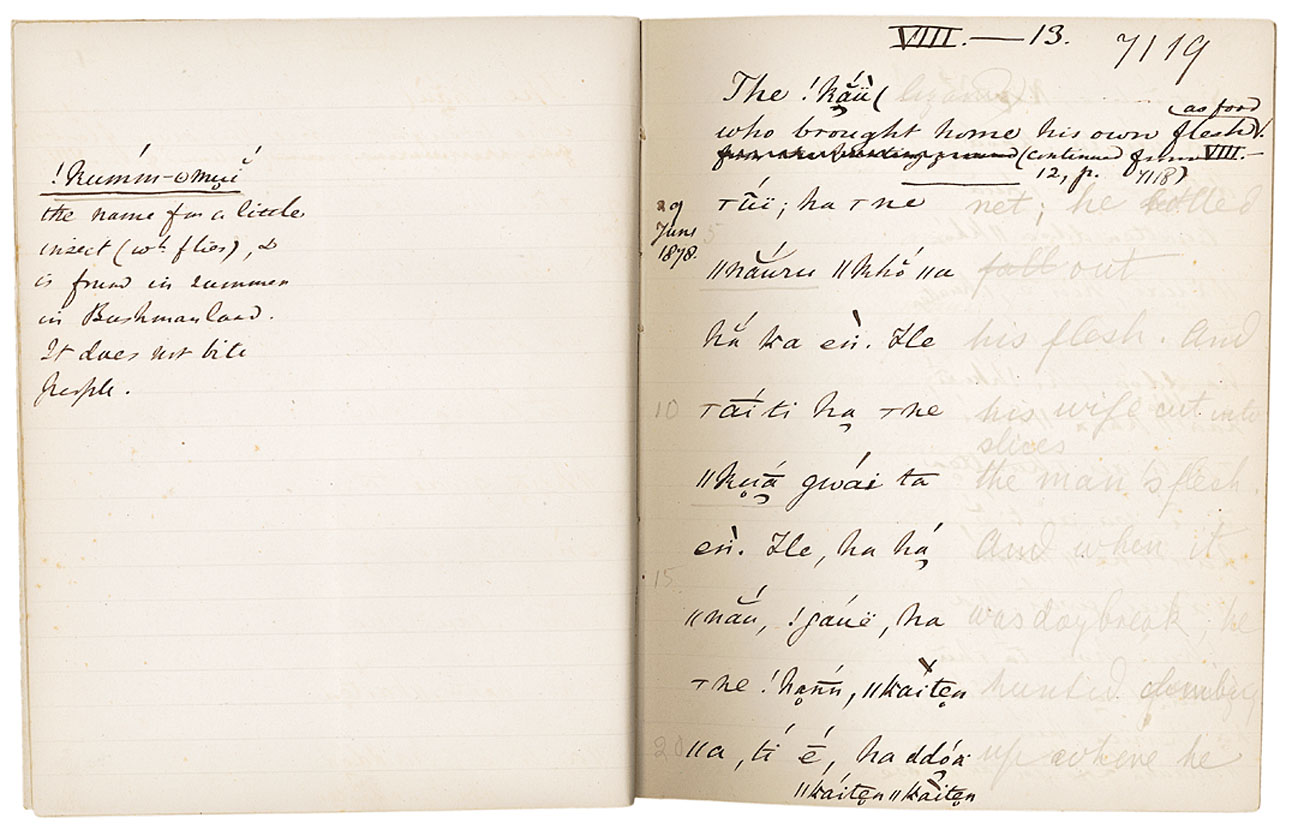 !kúmm-ʘmu̥ĭ
the name for a little
insect (wh. flies), &
is found in summer
in Bushmanland.
It does not bite
people.
VIII. — 13. 7119
The !kắü (lizard)
as food
who brought home his own flesh
(continued from VIII.—
12, p. 7118)
29
June
1878.
5
ha ⊤ne net; he rolled
ǁnắuru ǁkhŏ́ ǁa fall out
hắ ka eǹ. Ïle his flesh. And
10
⊤ā́ĭti ha̰ ⊤ne his wife cut into
slices
ǁku̥ā́ gwái ta the man's flesh.
eǹ. Ïle, ha há̰ And when it
15
ǁnắu, !gáuë, ha was daybreak, he
⊤ne !ha̰ńń, ǁkàĭte̥n hunted climbing
20
ǁa, tí ḗ, ha ddóä up where he
ǁkáĭte̥n ǁkàĭte̥n